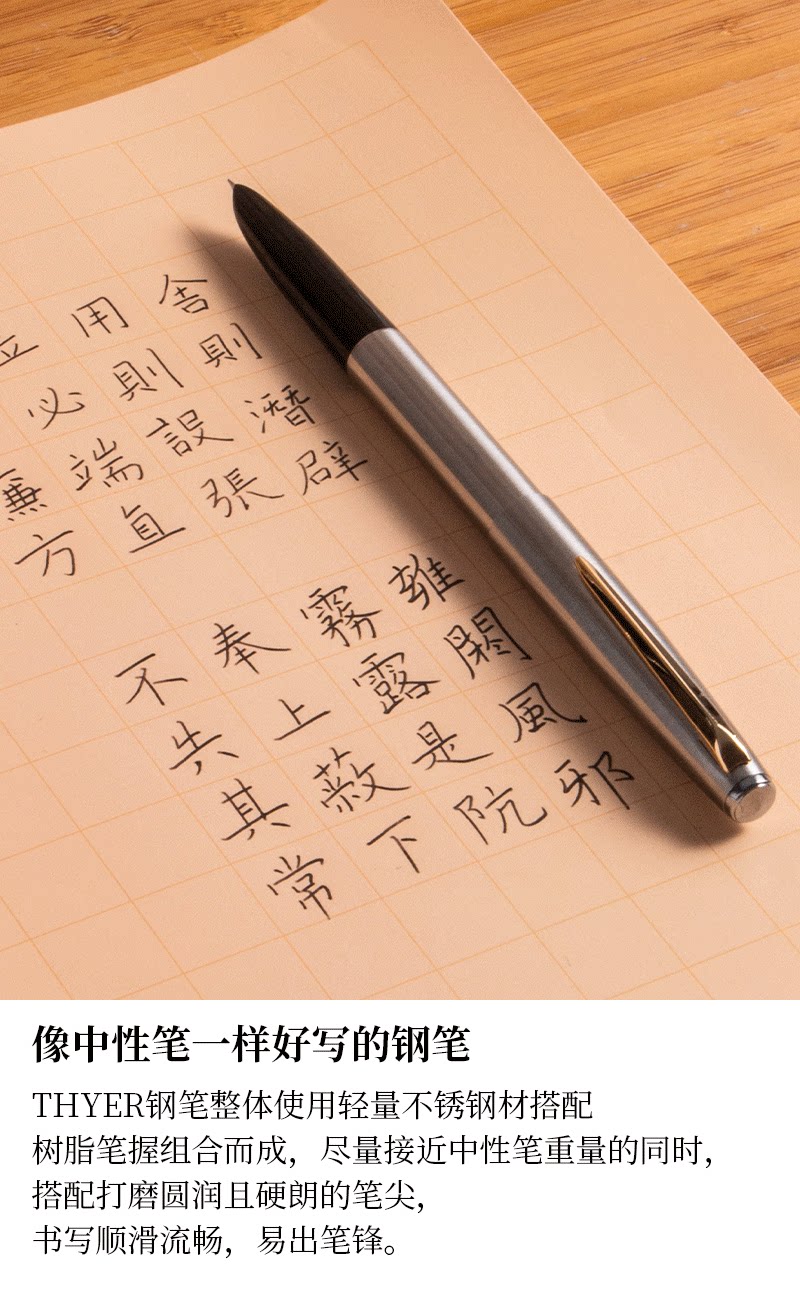 舍則潛辟 雍閼風邪
用則設張 霧露是阬
立必端直 奉上蔽下
廉方 不失其常
像中性笔一样好写的钢笔
THYER钢笔整体使用轻量不锈钢材搭配
树脂笔握组合而成，尽量接近中性笔重量的同时，
搭配打磨圆润且硬朗的笔尖，
书写顺滑流畅，易出笔锋。